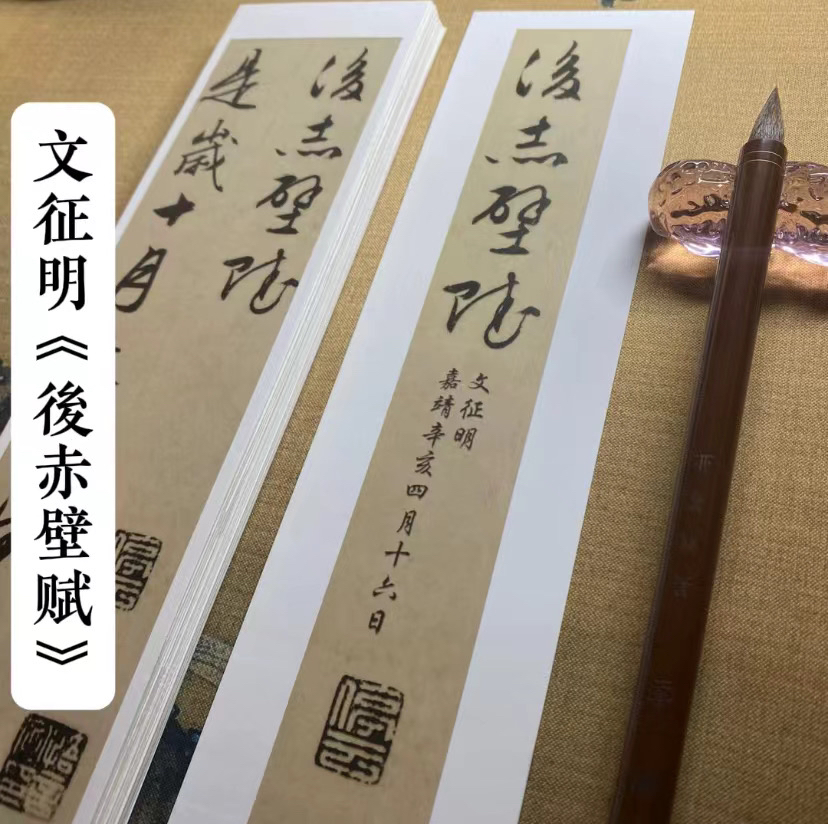 文征明《後赤壁赋》
後赤壁賦
是歲十月
後赤壁賦
文征明
嘉靖辛亥四月十六日
停云